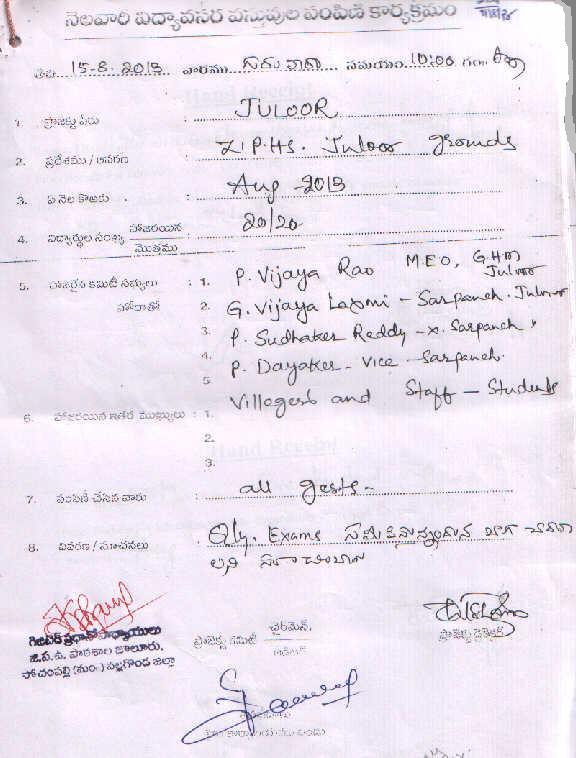 నెలవారి విద్యావసర వస్తువుల పంపిణి కార్యక్రమం
తేది 15-8-2013 వారము గురువారం సమయం 10:00 గం॥
1. ప్రాజెక్టు పేరు : JULOOR
2. ప్రదేశము / ఆవరణ : Z.P.HS. Juloor grounds
3. ఏ నెల కొఱకు : Aug - 2013
4. విద్యార్థుల సంఖ్య హాజరయిన : 20/20
మొత్తము
5. హాజరైన కమిటీ సభ్యులు : 1. P. Vijaya Rao M.E.O, G.HM Juloor
హోదాతో 2. G. Vijaya Laxmi - Sarpanch. Juloor
3. P. Sudhaker Reddy - x. Sarpanch
4. P. Dayaker - Vice Sarpanch.
5 Villagers and Staff - Students
6. హాజరయిన ఇతర ముఖ్యులు : 1.
2.
3.
7. పంపిణీ చేసిన వారు : all gests -
8. వివరణ / సూచనలు : Qly. Exams
గెజిటెడ్ ప్రధానోపాధ్యాయులు
జి.ప.ఉ. పాఠశాల జూలూరు,
పోచంపల్లి (మం॥) నల్లగొండ జిల్లా
ప్రాజెక్టు కమిటీ
ఛైర్మెన్,
ప్రాజెక్టు డైరెక్టర్